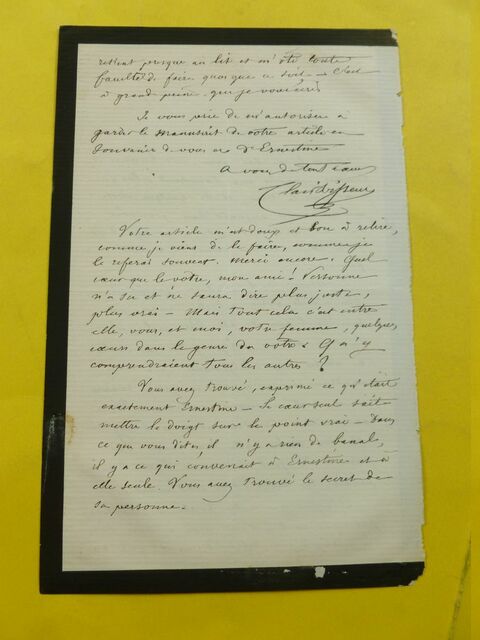 retient presque au lit et m'ôte toute
faculté de faire quoique ce soit - C'est
à grand peine que je vous écris
Je vous prie de m'autoriser à
garder le manuscrit de votre article en
souvenir de vous et d'Ernestine
A vous de tout cœur
Clair Tisseur
Votre article m'est doux et bon à relire,
comme je viens de le faire, comme je
le referai souvent. Merci encore. Quel
cœur que le vôtre, mon ami ! Personne
n'a su et ne saura dire plus juste,
plus vrai - Mais tout cela c'est entre
elle, vous, et moi, votre femme, quelques
cœurs dans le genre du vôtre. Qu'y
comprendraient tous les autres ?
Vous avez trouvé, exprimé ce qu'était
exactement Ernestine - Le cœur seul sait
mettre le doigt sur le point vrai - Dans
ce que vous dites il n'y a rien de banal,
il y a ce qui convenait à Ernestine et à
elle seule. Vous avez trouvé le secret de
sa personne.